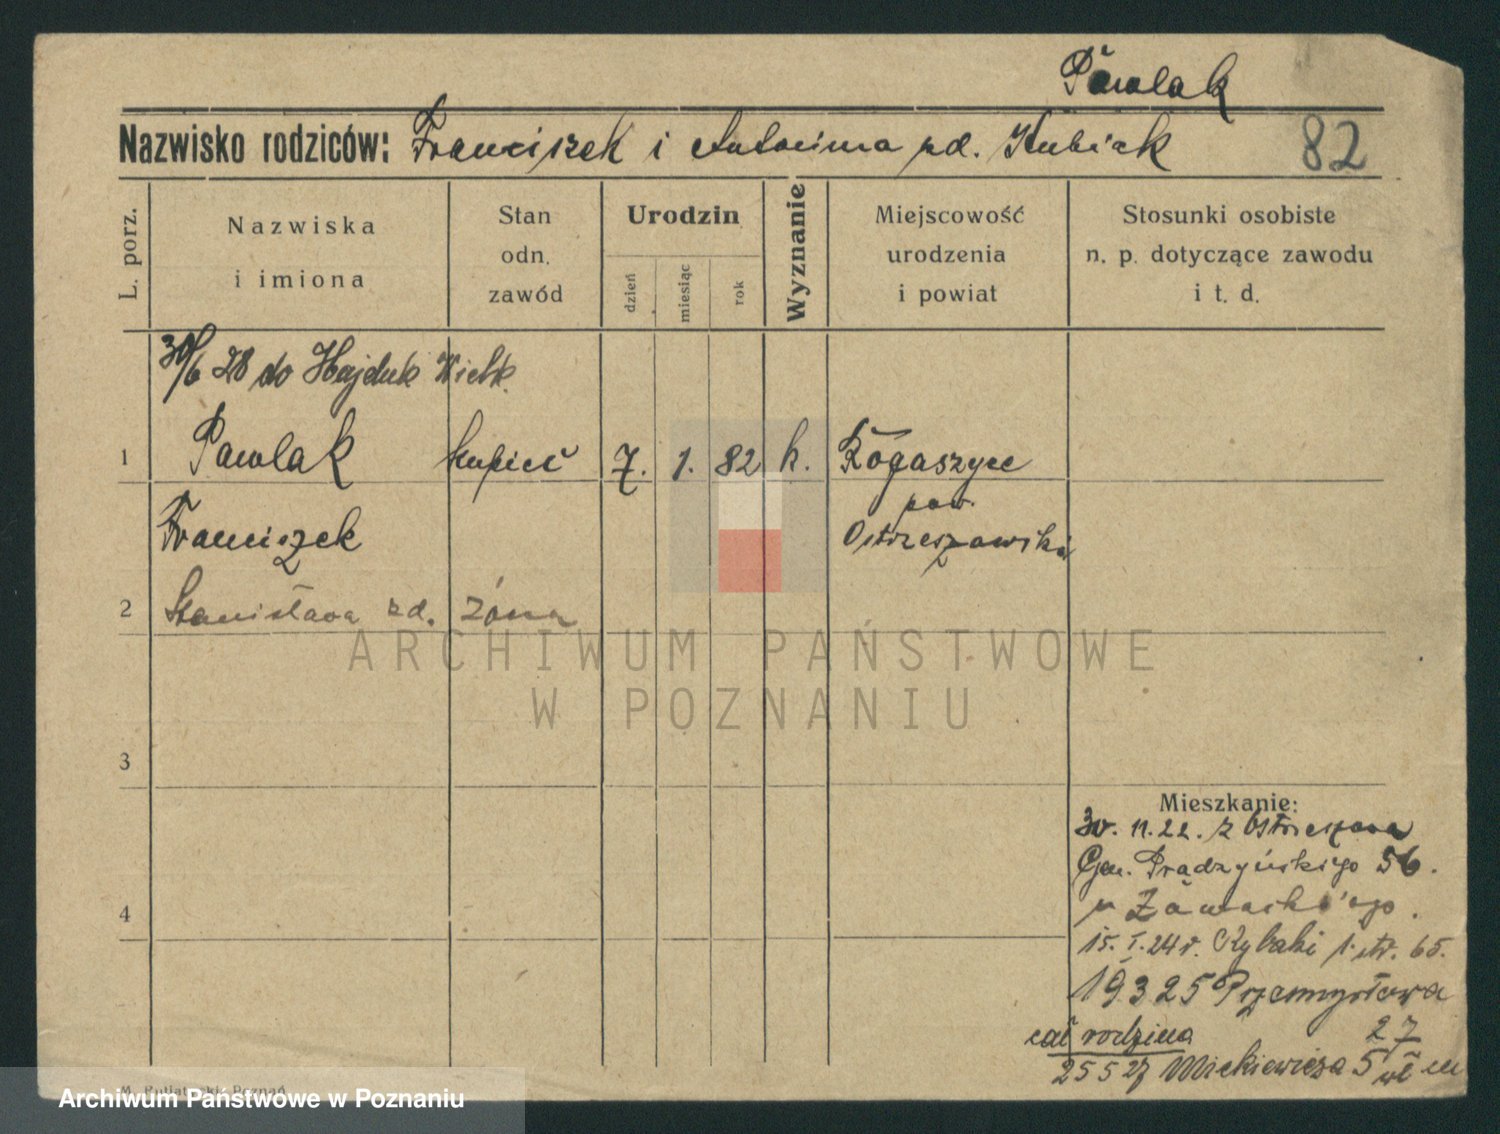 Pawlak
Nazwisko rodziców: Franciszek i Antonina zd. Kubiak
82
L. porz.
Nazwiska
i imiona
Stan
odn.
zawód
Urodzin
dzień
miesiąc
rok
Wyznanie
Miejscowość
urodzenia
i powiat
Stosunki osobiste
n. p. dotyczące zawodu
i t. d.
30/6 28 do Hajduk Wielk.
1 Pawlak kupiec 7. 1. 82 k. Rogaszyce
pow.
Franciszek Ostrzeszowski
2 Stanisława zd. żona
3
4
Mieszkanie:
30. 11. 22. z Ostrzeszowa
Gen. Prądzyńskiego 56.
u
15. I. 24 r. Rybaki 1. str. 65.
19 3 25 Przemysłowa
27
cał rodzina
25 5 27 Mickiewicza 5
ARCHIWUM PAŃSTWOWE
W POZNANIU
Poznań
Archiwum Państwowe w Poznaniu